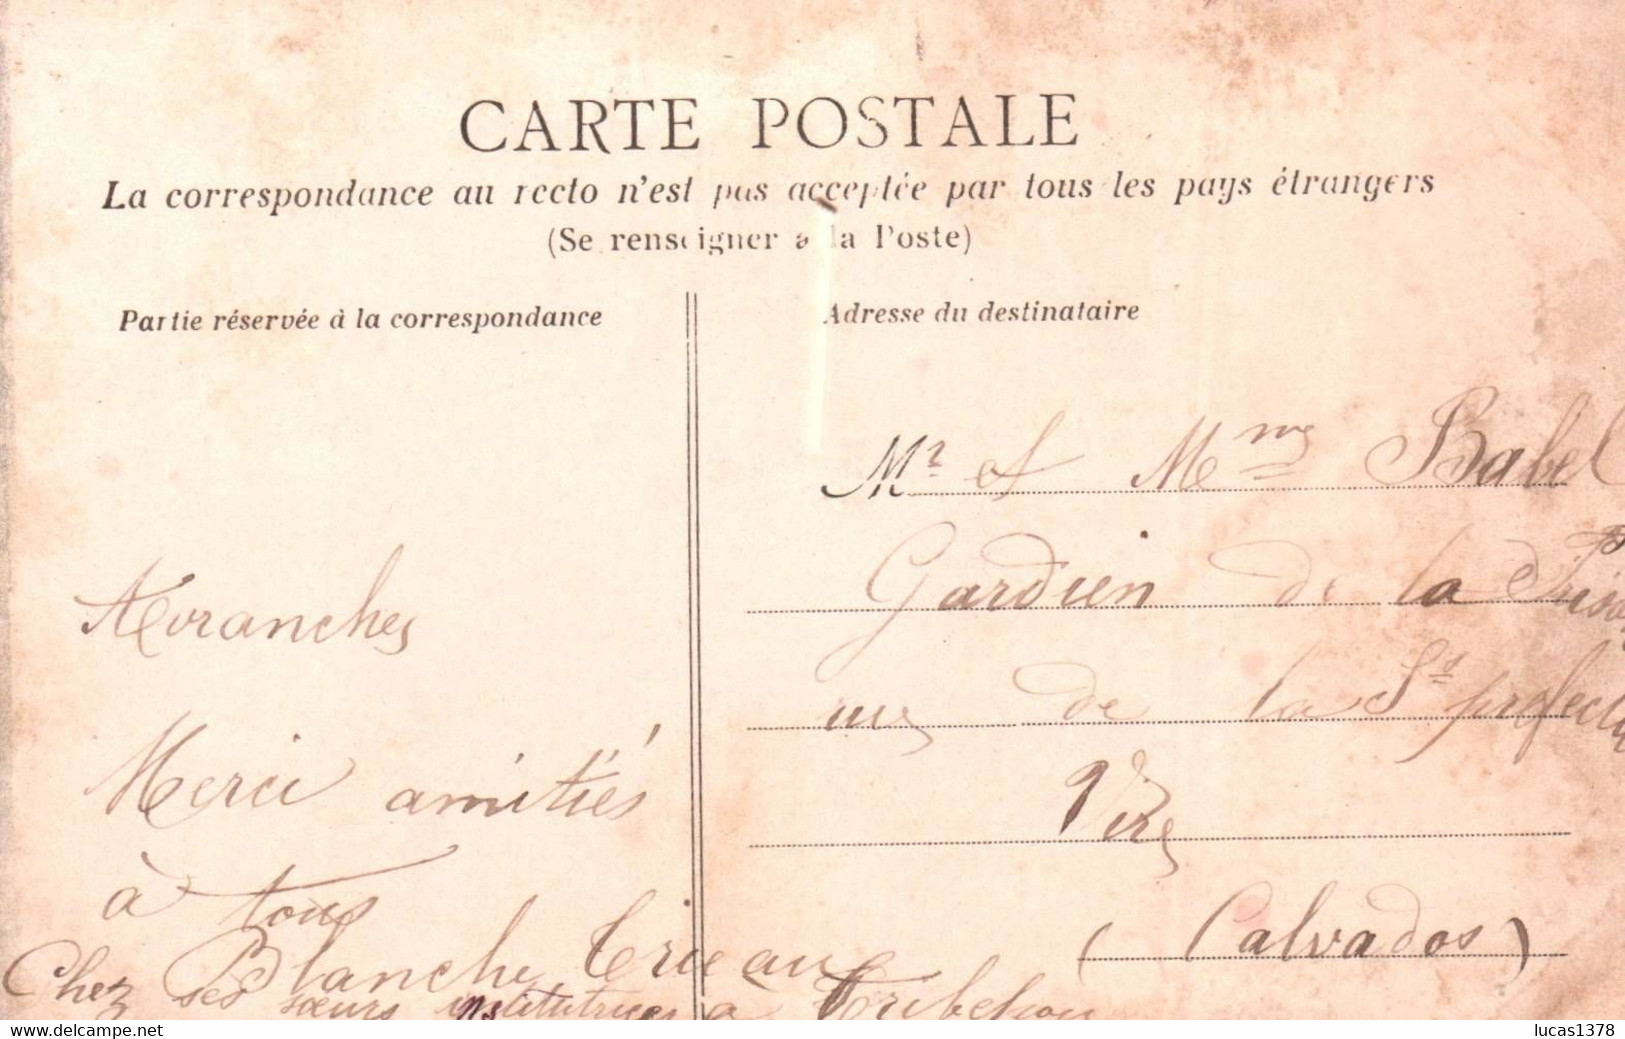 CARTE POSTALE
La correspondance au recto n'est pas acceptée par tous les pays étrangers
(Se renseigner à la Poste)
Partie réservée à la correspondance
Adresse du destinataire
Avranches
Merci amitiés
à tous
Blanche
Chez ses sœurs institutrices à
Mr et Mme Babel
Gardien de la Prison
de la St préfectu
Vire
(Calvados)
www.delcampe.net
lucas1378